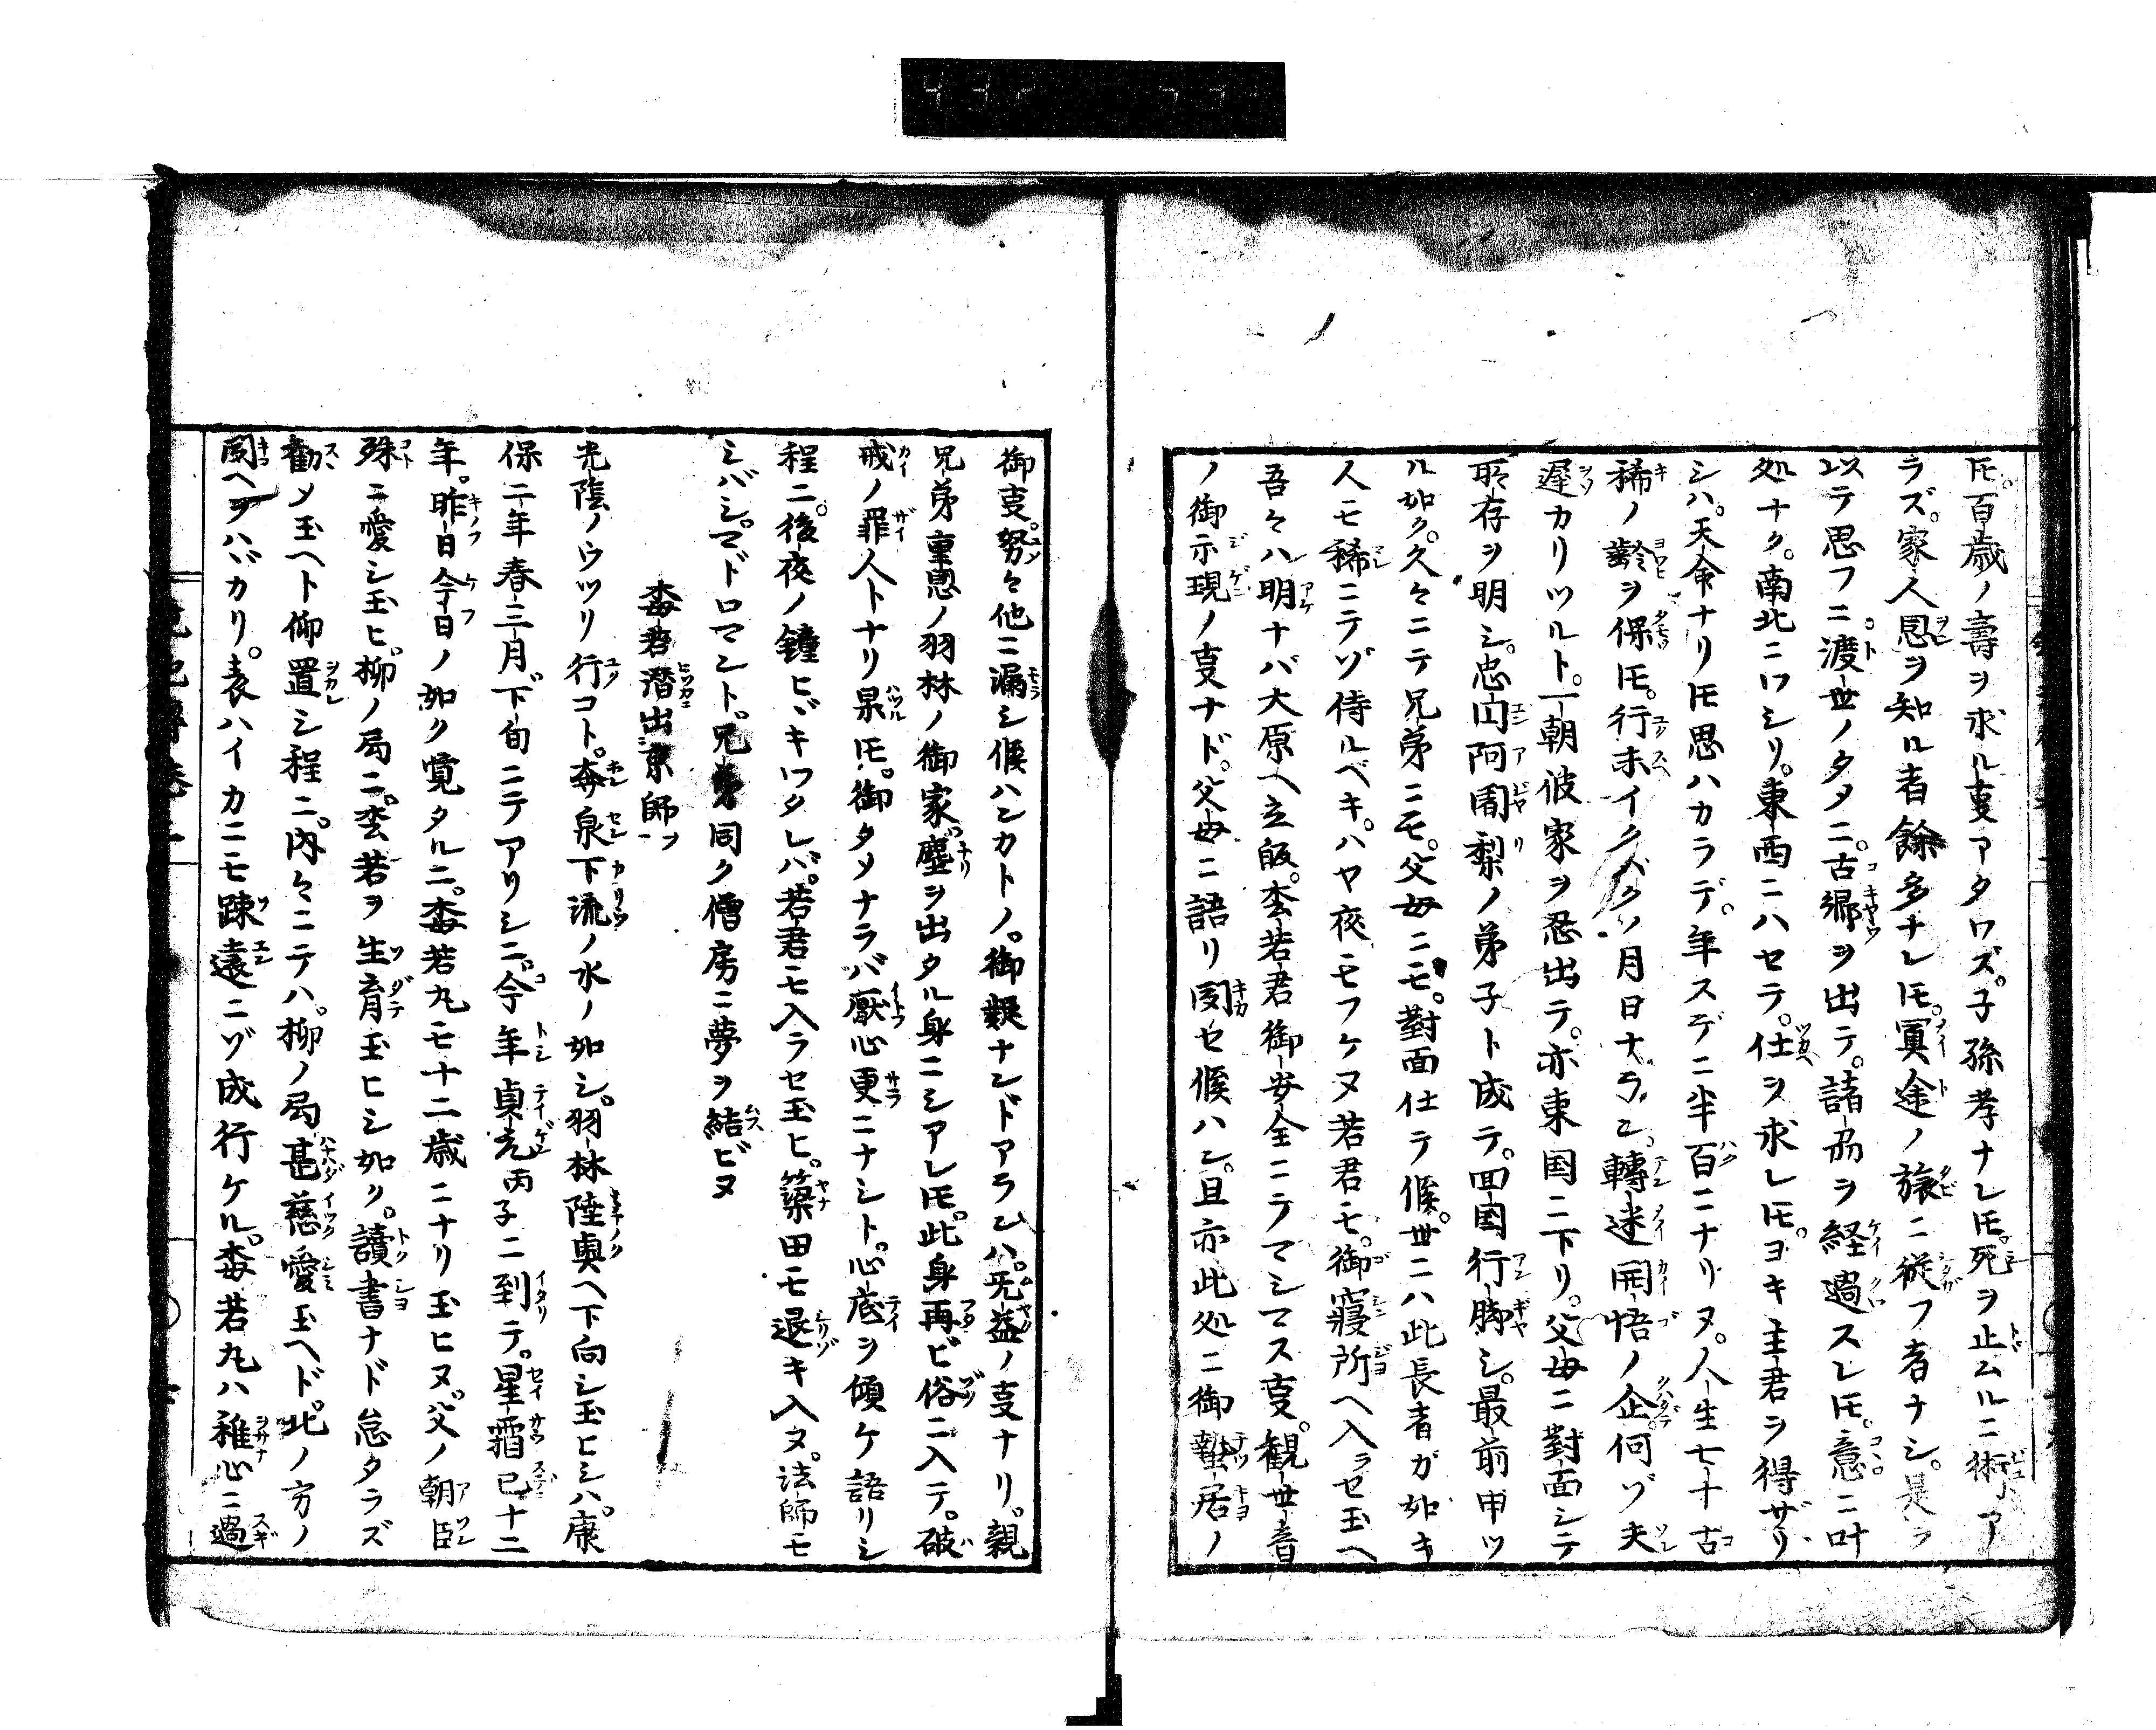 𪜈。百歳ノ壽ヲ求ル㕝アタワズ。子孫孝ナレ𪜈。死ヲ止ムルニ術ア
ラズ。家人恩ヲ知ル者餘多ナレ𪜈。冥途ノ旅ニ從フ者ナシ。是ヲ
以テ思フニ渡世ノタメニ。古郷ヲ出テ。諸州ヲ経過スレ𪜈。意ニ叶
処ナク。南北ニワシリ。東西ニハセテ。仕ヲ求レ𪜈。ヨキ主君ヲ得ザリ
シハ。天命ナリ𪜈思ハカラデ。年スデニ半百ニナリヌ。人生七十古
稀ノ齢ヲ保𪜈。行末イクバクノ月日ナラン。轉迷開悟ノ企。何ゾ夫
遅カリツルト。一朝彼家ヲ忍出テ。亦東国ニ下リ。父母ニ對面シテ
所存ヲ明シ。忠円阿闍梨ノ弟子ト成テ。回国行脚シ。最前申ツ
ル如ク。久々ニテ兄弟ニモ。父母ニモ。對面仕テ候。世ニハ此長者ガ如キ
人モ稀ニテゾ侍ルベキ。ハヤ夜モフケヌ若君モ。御寝所ヘ入ラセ玉ヘ
吾々ハ明ナバ大原ヘ立皈。杢若君御安全ニテマシマス㕝。観世音
ノ御示現ノ㕝ナド。父母ニ語リ聞セ候ハン。且亦此処ニ御蟄居ノ
御㕝。努々他ニ漏シ候ハンカトノ。御疑ナンドアランハ。无益ノ㕝ナリ。親
兄弟重恩ノ羽林ノ御家。塵ヲ出タル身ニシアレ𪜈。此身再ビ俗ニ入テ。破
戒ノ罪人トナリ果𪜈。御タメナラバ厭心更ニナシト。心底ヲ傾ケ語リシ
程ニ。後夜ノ鐘ヒヾキワタレバ。若君モ入ラセ玉ヒ。簗田モ退キ入ヌ。法師モ
シバシ。マドロマント。兄弟同ク僧房ニ夢ヲ結ビヌ
杢若潜出京師ヲ
光陰ノウツリ行コト。奔泉下流ノ水ノ如シ。羽林陸奥ヘ下向シ玉ヒシハ。康
保二年春三月。下旬ニテアリシニ。今年貞元丙子ニ到テ。星霜已十二
年。昨日今日ノ如ク覚タルニ。杢若丸モ十二歳ニナリ玉ヒヌ。父ノ朝臣
殊ニ愛シ玉ヒ。柳ノ局ニ。杢若ヲ生育玉ヒシ如ク。讀書ナド怠タラズ
勸メ玉ヘト仰置シ程ニ。内々ニテハ。柳ノ局甚慈愛玉ヘド。北ノ方ノ
聞ヘヲハバカリ。表ハイカニモ踈遠ニゾ成行ケル。杢若丸ハ稚心ニ過